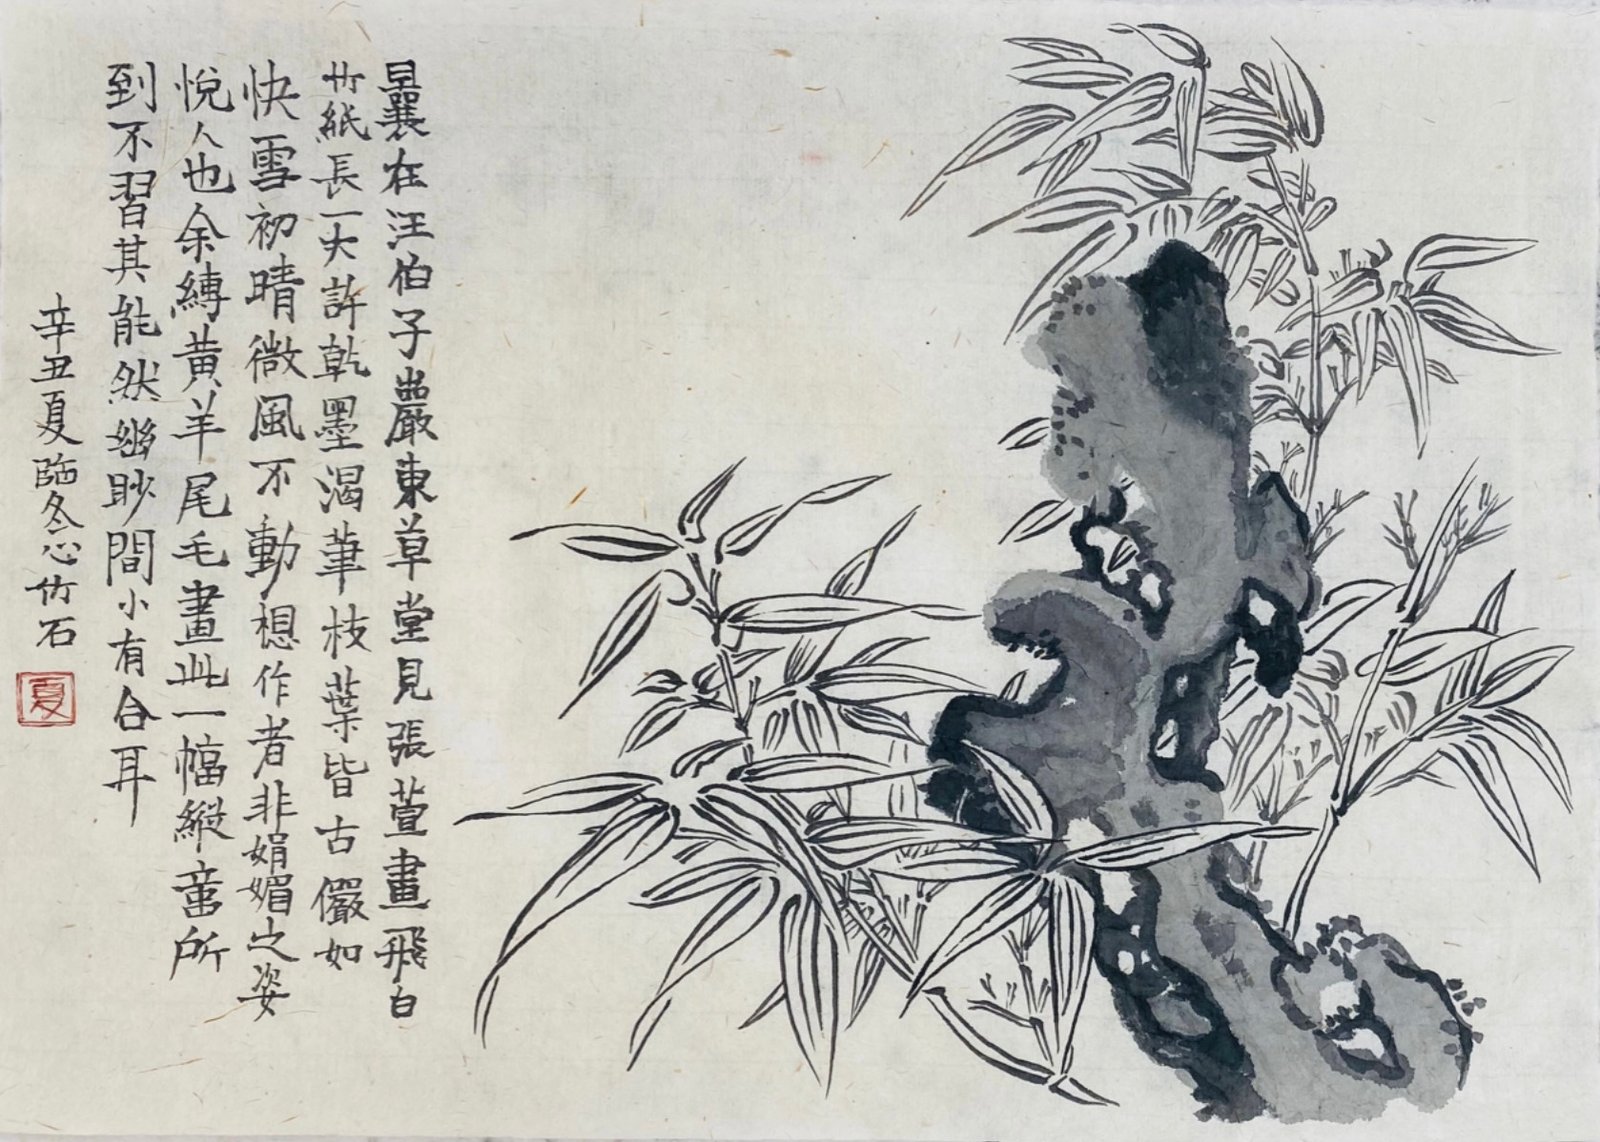 曩在汪伯子巖東草堂見張萱畫飛白
竹紙長一丈許乾墨渴筆枝葉皆古儼如
快雪初晴微風不動想作者非娟媚之姿
悅人也余縛黃羊尾毛畫此一幅縱童所
到不習其能然幽眇間小有合耳
辛丑夏臨冬心竹石
夏